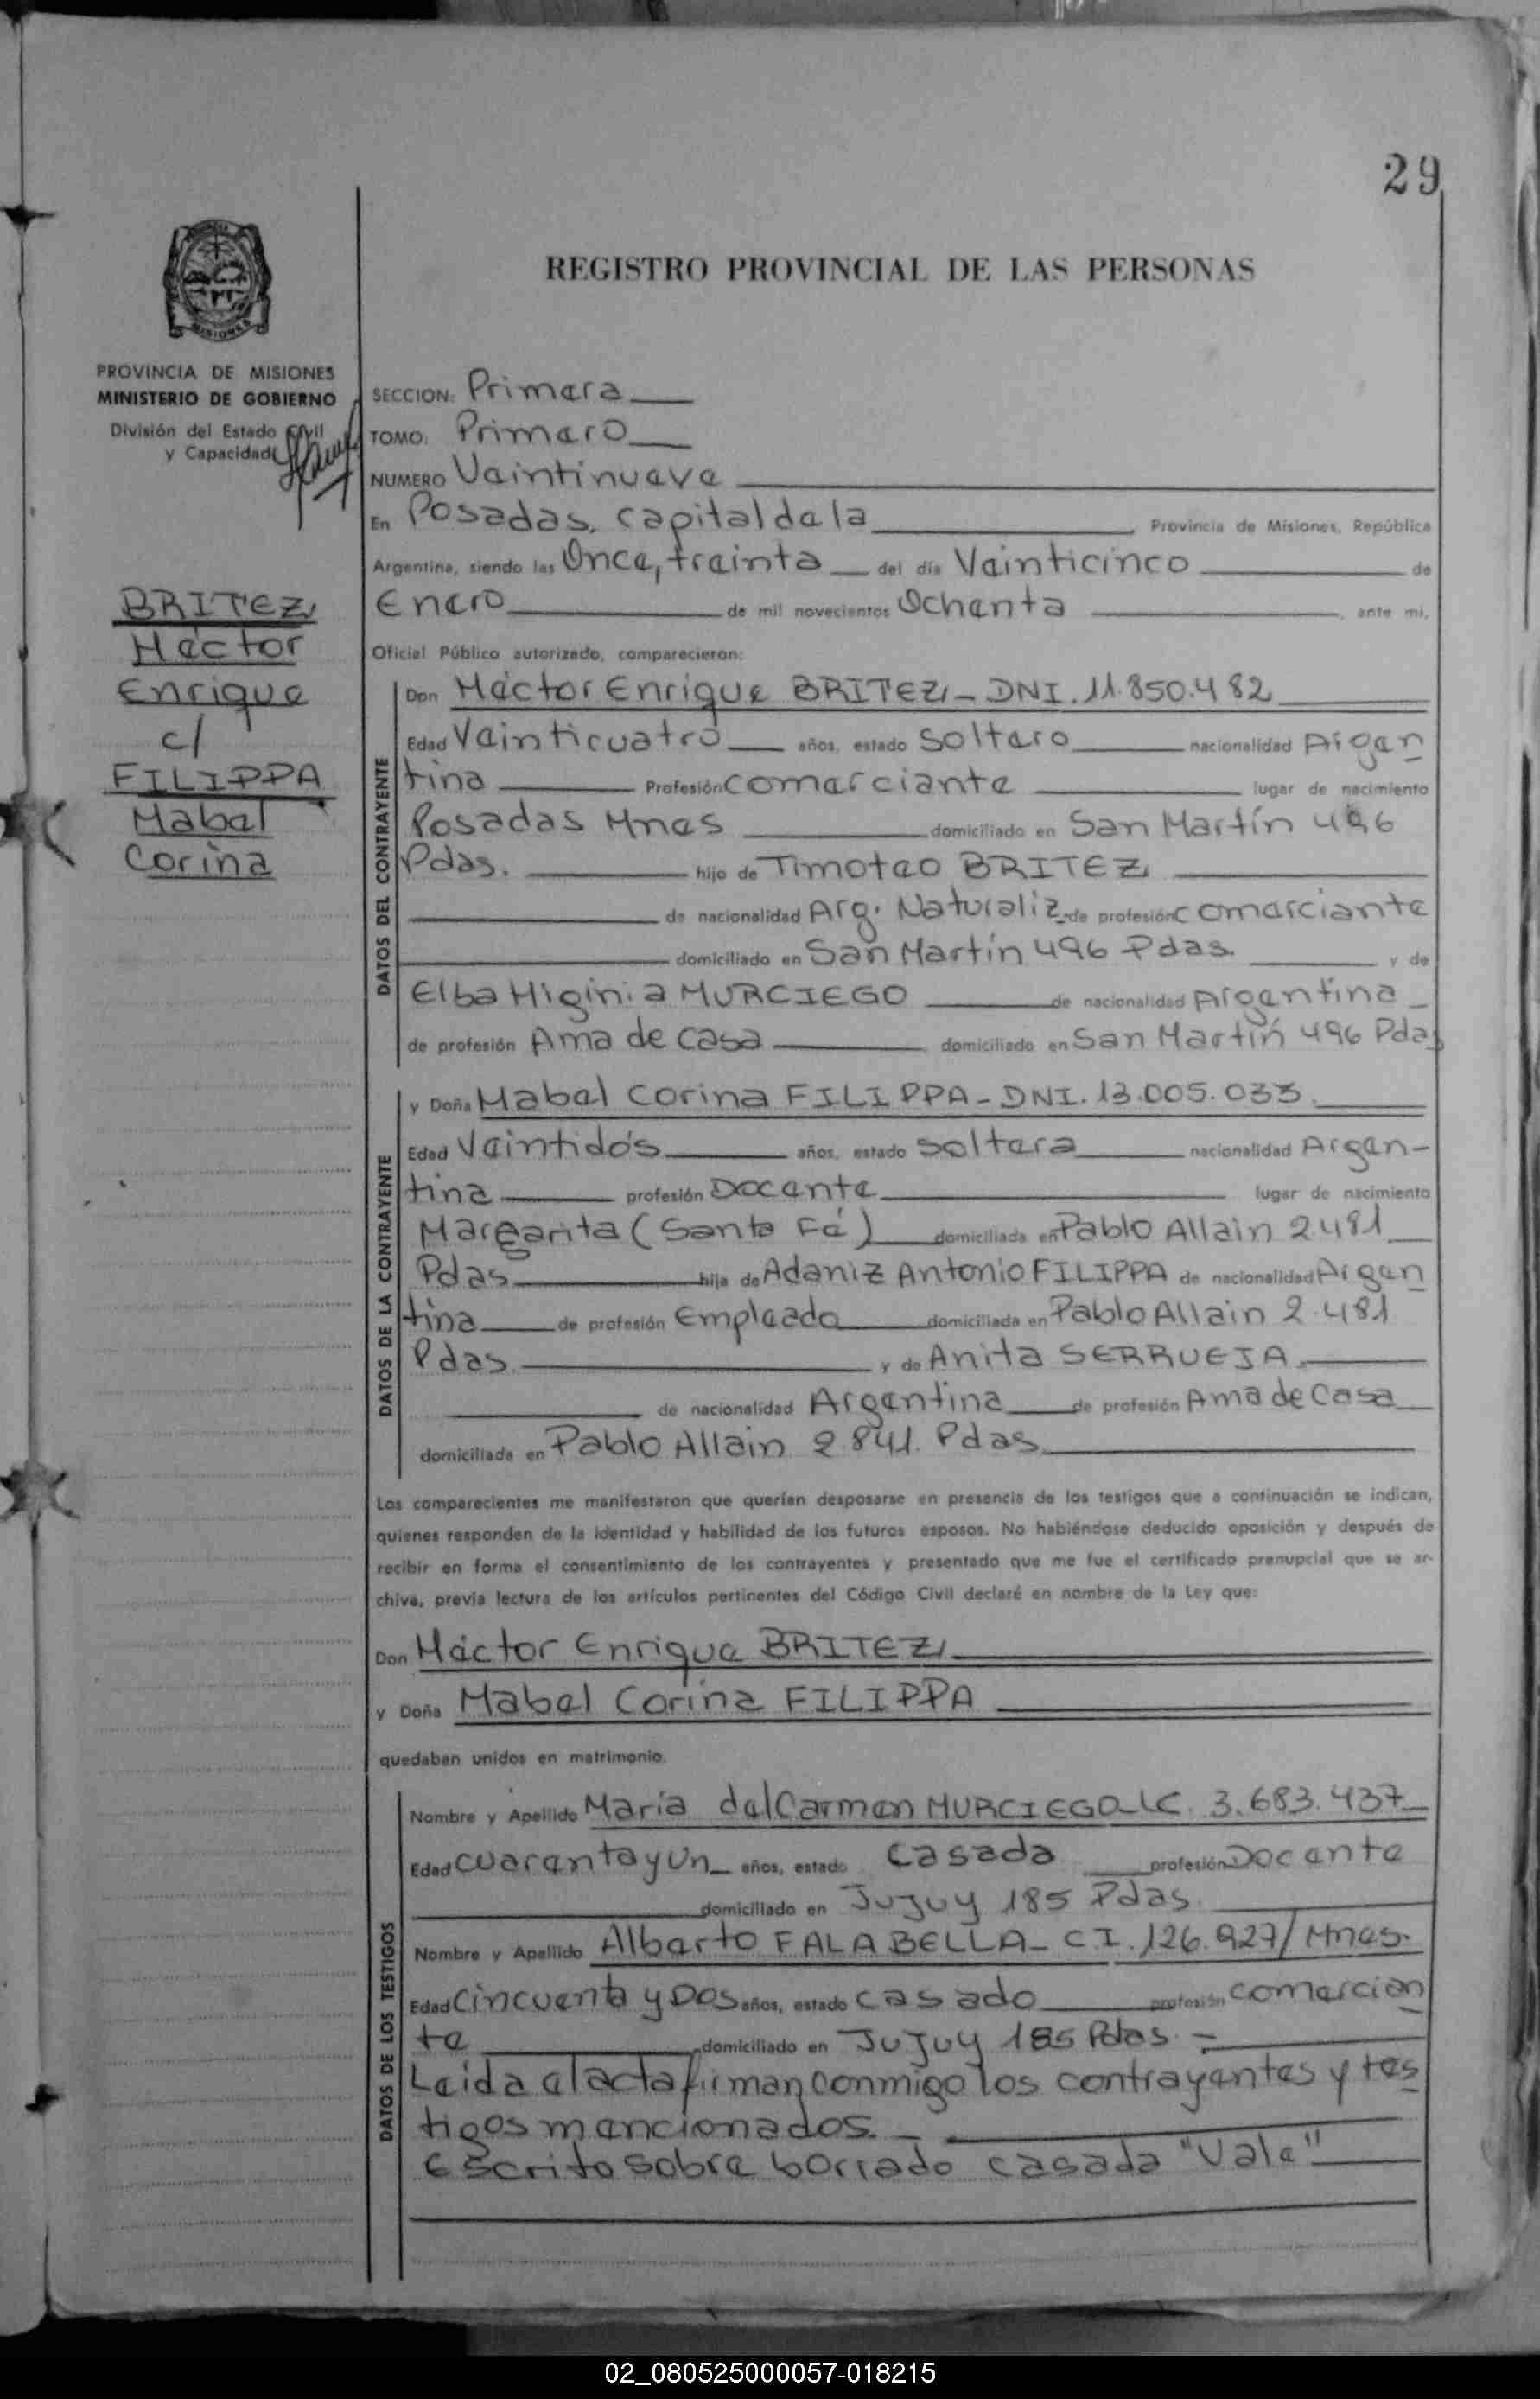 29
REGISTRO PROVINCIAL DE LAS PERSONAS
MISIONES
PROVINCIA DE MISIONES
MINISTERIO DE GOBIERNO
División del Estado Civil
y Capacidad
BRITEZ
Héctor
Enrique
c/
FILIPPA
Mabel
Corina
SECCION: Primera
TOMO: Primero
NUMERO Veintinueve
En Posadas, capital de la Provincia de Misiones, República
Argentina, siendo las Once, treinta del día Veinticinco de
Enero de mil novecientos Ochenta, ante mi,
Oficial Público autorizado, comparecieron:
DATOS DEL CONTRAYENTE
Don Héctor Enrique BRITEZ - DNI. 11.850.482
Edad Veinticuatro años, estado Soltero nacionalidad Argen
tina Profesión Comerciante lugar de nacimiento
Posadas Mnes domiciliado en San Martín 496
Pdas. hijo de Timoteo BRITEZ
de nacionalidad Arg. Naturaliz. de profesión Comerciante
domiciliado en San Martín 496 Pdas. y de
Elba Higinia MURCIEGO de nacionalidad Argentina
de profesión Ama de Casa domiciliado en San Martín 496 Pdas
DATOS DE LA CONTRAYENTE
y Doña Mabel Corina FILIPPA - DNI. 13.005.033.
Edad Veintidós años, estado Soltera nacionalidad Argen-
tina profesión Docente lugar de nacimiento
Margarita (Santa Fé) domiciliada en Pablo Allain 2.481
Pdas hija de Adeniz Antonio FILIPPA de nacionalidad Argen
tina de profesión Empleado domiciliada en Pablo Allain 2.481
Pdas. y de Anita SERRUEJA.
de nacionalidad Argentina de profesión Ama de Casa
domiciliada en Pablo Allain 2841. Pdas
Los comparecientes me manifestaron que querían desposarse en presencia de los testigos que a continuación se indican,
quienes responden de la identidad y habilidad de los futuros esposos. No habiéndose deducido oposición y después de
recibir en forma el consentimiento de los contrayentes y presentado que me fue el certificado prenupcial que se ar-
chiva, previa lectura de los artículos pertinentes del Código Civil declaré en nombre de la Ley que:
Don Héctor Enrique BRITEZ
y Doña Mabel Corina FILIPPA
quedaban unidos en matrimonio.
DATOS DE LOS TESTIGOS
Nombre y Apellido María del Carmen MURCIEGO - LC. 3.683.437
Edad Cuarenta y Un años, estado Casada profesión Docente
domiciliado en Jujuy 185 Pdas.
Nombre y Apellido Alberto FALABELLA - C.I. 126.927/Mnes.
Edad Cincuenta y Dos años, estado Casado profesión Comercian
te domiciliado en Jujuy 185 Pdas. -
Leida el acta firman conmigo los contrayentes y tes
tigos mencionados. -
Escrito sobre borrado casada "Vale"
02_080525000057-018215